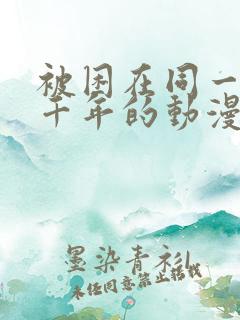 被困在同一
千年的動漫
墨染青衫
未经同意禁止转载